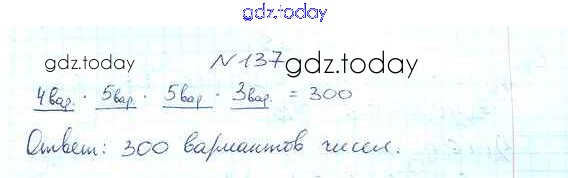 gdz.today
gdz.today N137 gdz.today
4вар. · 5вар · 5вар · 3вар. = 300
Ответ: 300 вариантов чисел.